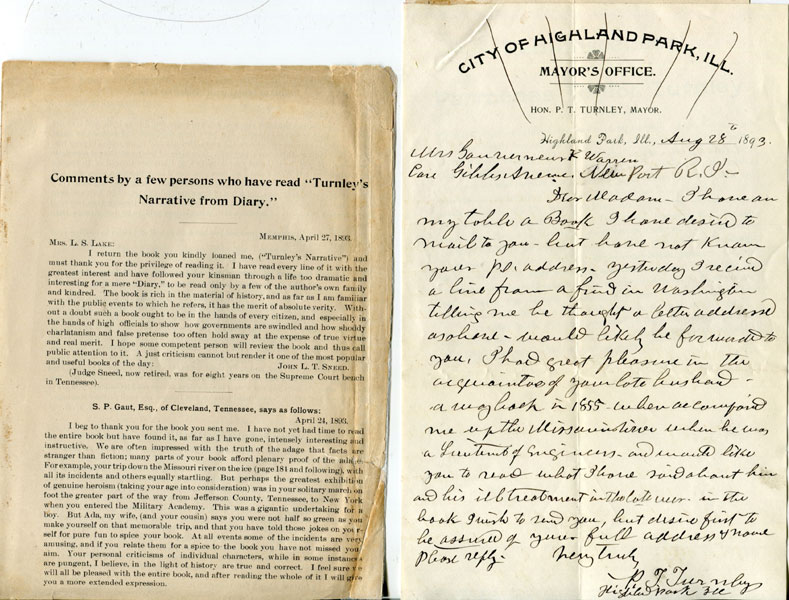 Comments by a few persons who have read "Turnley's
Narrative from Diary."
MEMPHIS, April 27, 1893.
MRS. L. S. LAKE:
I return the book you kindly loaned me, ("Turnley's Narrative") and
must thank you for the privilege of reading it. I have read every line of it with the
greatest interest and have followed your kinsman through a life too dramatic and
interesting for a mere "Diary," to be read only by a few of the author's own family
and kindred. The book is rich in the material of history, and as far as I am familiar
with the public events to which he refers, it has the merit of absolute verity. With-
out a doubt such a book ought to be in the hands of every citizen, and especially in
the hands of high officials to show how governments are swindled and how shoddy
charlatanism and false pretense too often hold sway at the expense of true virtue
and real merit. I hope some competent person will review the book and thus call
public attention to it. A just criticism cannot but render it one of the most popular
and useful books of the day:
JOHN L. T. SNEED.
(Judge Sneed, now retired, was for eight years on the Supreme Court bench
in Tennessee).
S. P. Gaut, Esq., of Cleveland, Tennessee, says as follows:
April 24, 1893.
I beg to thank you for the book you sent me. I have not yet had time to read
the entire book but have found it, as far as I have gone, intensely interesting and
instructive. We are often impressed with the truth of the adage that facts are
stranger than fiction; many parts of your book afford plenary proof of the adage.
For example, your trip down the Missouri river on the ice (page 181 and following), with
all its incidents and others equally startling. But perhaps the greatest exhibition
of genuine heroism (taking your age into consideration) was in your solitary march on
foot the greater part of the way from Jefferson County, Tennessee, to New York
when you entered the Military Academy. This was a gigantic undertaking for a
boy. But Ada, my wife, (and your cousin) says you were not half so green as you
make yourself on that memorable trip, and that you have told those jokes on your-
self for pure fun to spice your book. At all events some of the incidents are very
amusing, and if you relate them for a spice to the book you have not missed your
aim. Your personal criticisms of individual characters, while in some instances
are pungent, I believe, in the light of history are true and correct. I feel sure
will all be pleased with the entire book, and after reading the whole of it I will give
you a more extended expression.
CITY OF HIGHLAND PARK, ILL.
MAYOR'S OFFICE.
HON. P. T. TURNLEY, MAYOR.
Highland Park, Ill., Aug 28th 1893.
Mrs Gouverneur K Warren
Care Gibbs Avenue, New Port R.I-
Dear Madam- I have on
my table a Book I have desired to
mail to you- but have not known
your p.o. address- yesterday I received
a line from a friend in Washington
telling me he thought a letter addressed
as above- would likely be forwarded to
you, I had great pleasure in the
acquaintance of your late husband-
away back in 1855- when accompanied
me up the Missouri River when he was
a Lieutenant of Engineers- and would like
you to read what I have said about him
and his ill treatment in the late war. in the
book I wish to send you, but desire first to
be assured of your full address & name
Please reply Very truly
P. T. Turnley
Highland Park Ill